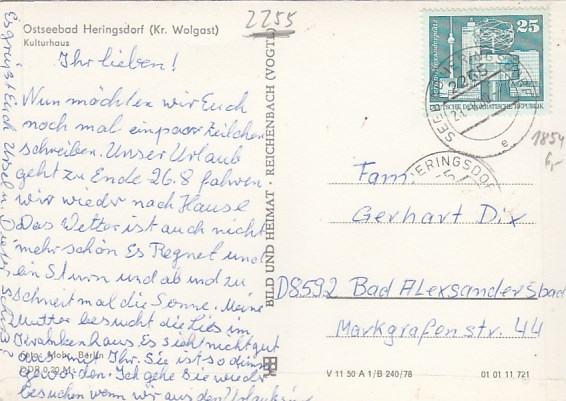 2255
Ostseebad Heringsdorf (Kr. Wolgast)
Kulturhaus
Ihr lieben!
Nun möchten wir Euch
noch mal ein paar Zeilchen
schreiben. Unser Urlaub
geht zu Ende 26.8 fahren
wir wieder nach Hause
Das Wetter ist auch nicht
mehr schön Es Regnet und
ein Sturm und ab und zu
schneit mal die Sonne. Meine
Mutter besucht die Lies im
Krankenhaus. Es sieht nicht gut
aus mit Ihr. Sie ist so dünn
geworden. Ich gehe Sie wieder
besuchen wenn wir aus den Urlaub
Foto: Mohr, Berlin
DDR 0,20 M
Es grüßt Euch
BILD UND HEIMAT · REICHENBACH (VOGTL)
25
DEUTSCHE DEMOKRATISCHE REPUBLIK
SEEBAD HERINGSDORF
2255
e
HERINGSDORF
1854
6,-
Fam.
Gerhart Dix
D8592 Bad Alexandersbad
Markgrafenstr. 44
V 11 50 A 1/B 240/78
01 01 11 721